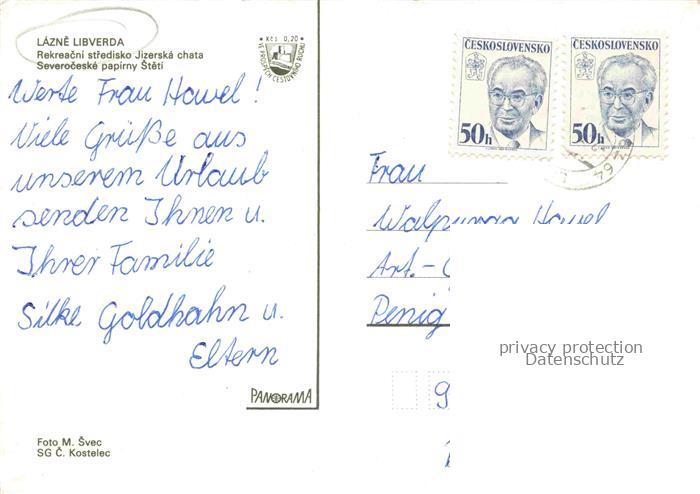 LÁZNĚ LIBVERDA
Rekreační středisko Jizerská chata
Severočeské papírny Štětí
Kčs 0,20
VE PROSPĚCH CESTOVNÍHO RUCHU
Werte Frau Hawel!
Viele Grüße aus
unserem Urlaub
senden Ihnen u.
Ihrer Familie
Silke Goldhahn u.
Eltern
PANORAMA
Foto M. Švec
SG Č. Kostelec
ČESKOSLOVENSKO
50h
ČESKOSLOVENSKO
50h
64
Frau
Hawel
Art.-
Penig
9
privacy protection
Datenschutz